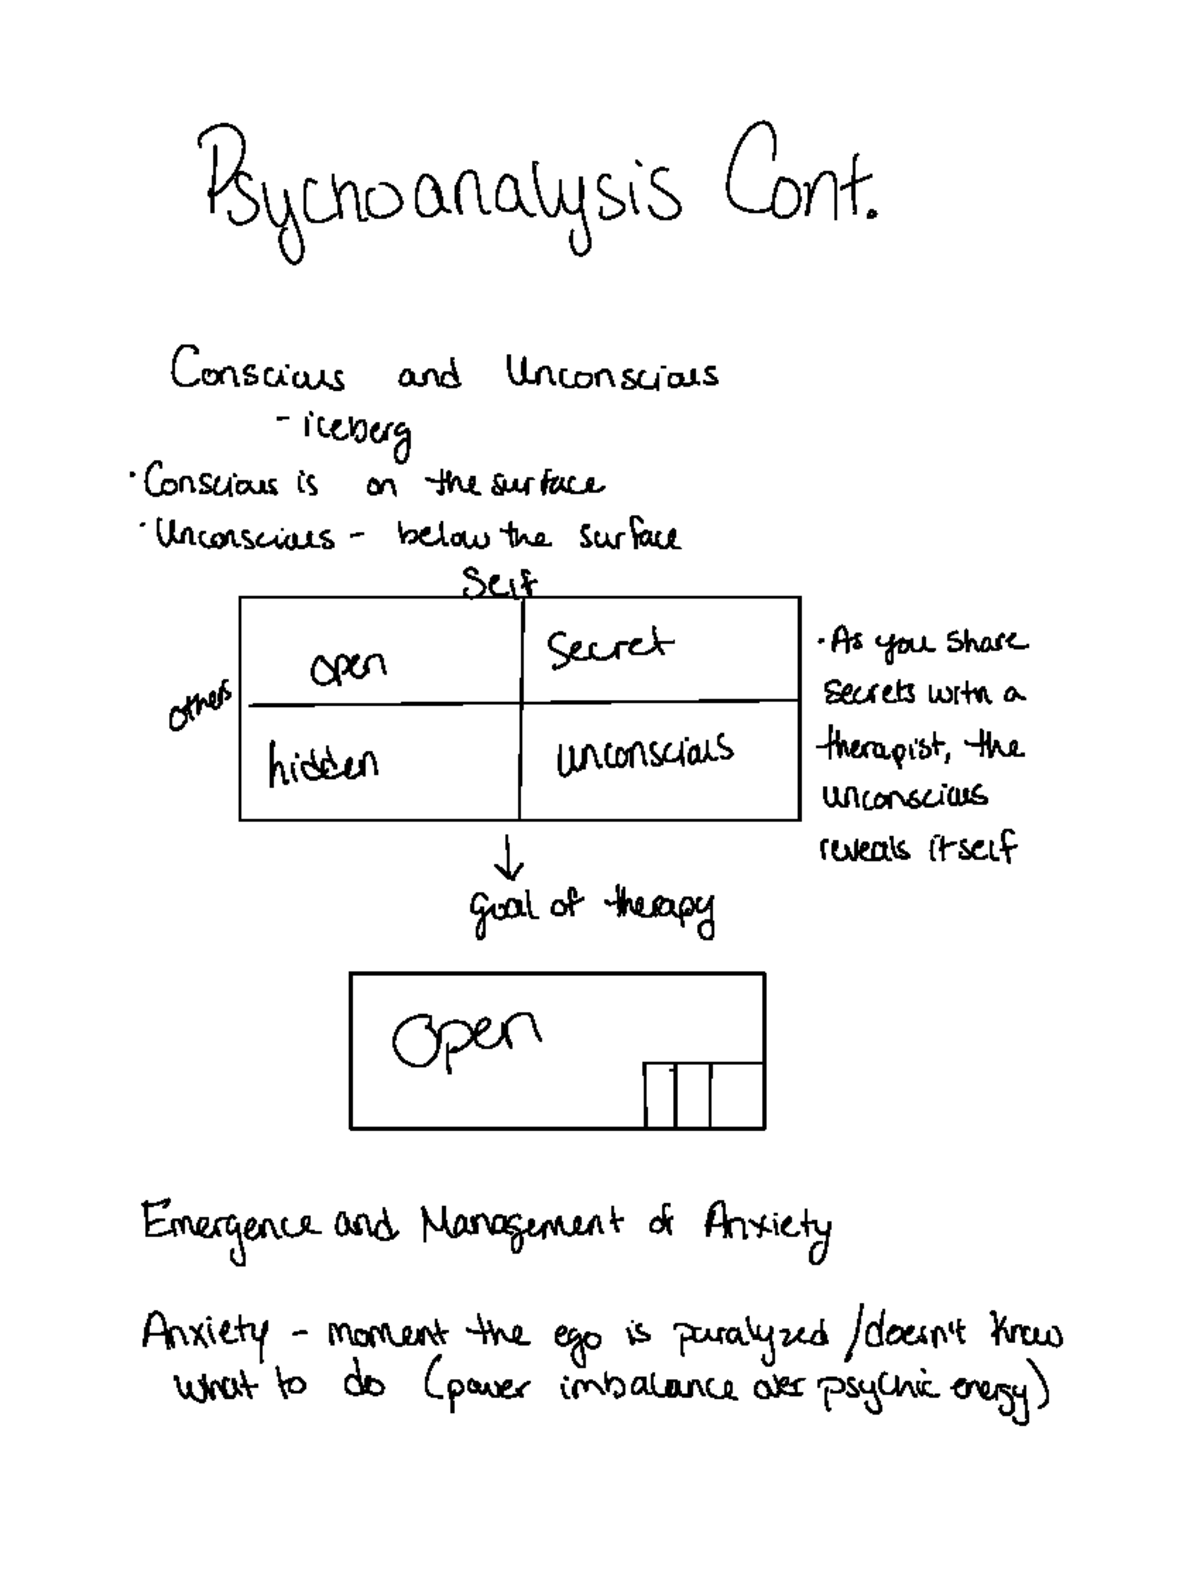 Psychoanalysis Cont.
Conscious and Unconscious
- iceberg
· Conscious is on the surface
· Unconscious - below the surface
Self
open
Secret
others
hidden
unconscious
· As you share
secrets with a
therapist, the
unconscious
reveals itself
↓
goal of therapy
Open
Emergence and Management of Anxiety
Anxiety - moment the ego is paralyzed / doesn't know
what to do (power imbalance over psychic energy)